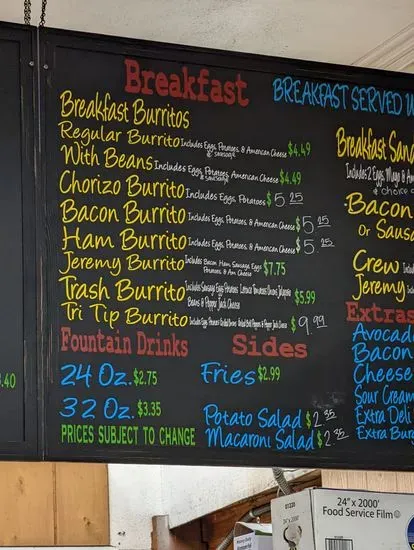 Breakfast
BREAKFAST SERVED W
Breakfast Burritos
Regular Burrito Includes Eggs, Potatoes & American Cheese $4.49
& SAUSAGE
With Beans Includes Eggs, Potatoes, American Cheese $4.49
& SAUSAGE
Chorizo Burrito Includes Eggs, Potatoes $5.25
Bacon Burrito Includes Eggs, Potatoes & American Cheese $5.25
Ham Burrito Includes Eggs, Potatoes & American Cheese $5.25
Jeremy Burrito Includes Bacon Ham Sausage Eggs $7.75
Potatoes & Am Cheese
Trash Burrito Includes Sausage Eggs Potatoes Lettuce Tomatoes Onions Jalapeño $5.99
Beans & Pepper Jack Cheese
Tri Tip Burrito Includes Eggs Potatoes Grilled Onions Grilled Bell Peppers & Pepper Jack Cheese $9.99
Fountain Drinks
24 Oz. $2.75
32 Oz. $3.35
PRICES SUBJECT TO CHANGE
Sides
Fries $2.99
Potato Salad $2.35
Macaroni Salad $2.35
Breakfast San
Includes 2 Eggs Mayo & Am
Bacon
or Sausa
Crew
Jeremy
Extras
Avocad
Bacon
Cheese
Sour Cream
Extra Deli
Extra Burg
.40
24" x 2000'
Food Service Film
24" x 2000'